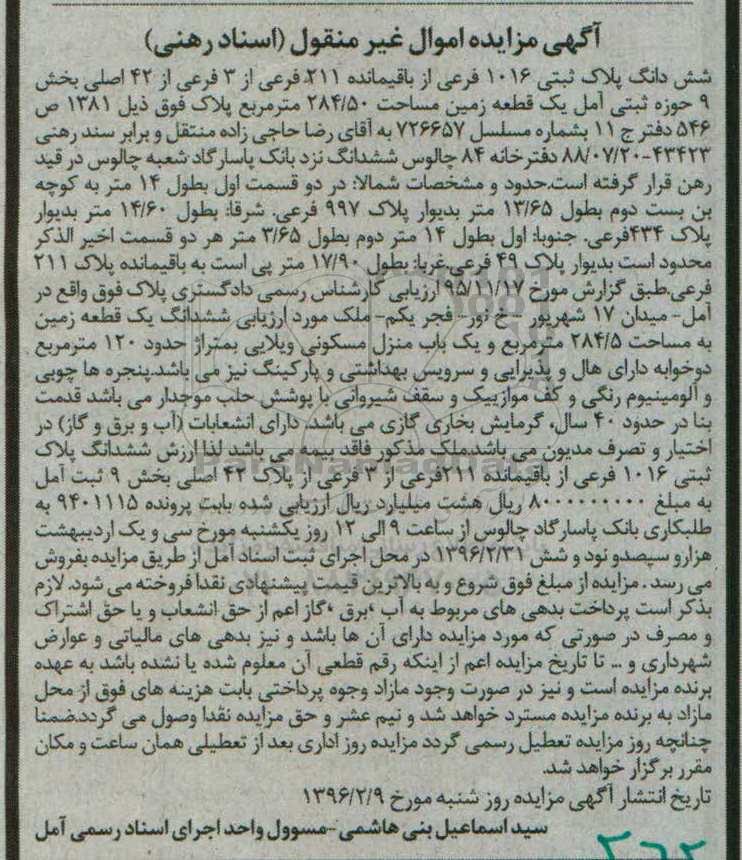 آگهی مزایده اموال غیر منقول (اسناد رهنی)
شش دانگ پلاک ثبتی ۱۰۱۶ فرعی از باقیمانده ۲۱۱ فرعی از ۳ فرعی از ۴۲ اصلی بخش
۹ حوزه ثبتی آمل یک قطعه زمین مساحت ۲۸۴/۵۰ مترمربع پلاک فوق ذیل ۱۳۸۱ ص
۵۴۶ دفتر ج ۱۱ بشماره مسلسل ۷۲۶۶۵۷ به آقای رضا حاجی زاده منتقل و برابر سند رهنی
۴۳۴۲۳-۸۸/۰۷/۲۰ دفترخانه ۸۴ چالوس ششدانگ نزد بانک پاسارگاد شعبه چالوس در قید
رهن قرار گرفته است.حدود و مشخصات شمالا: در دو قسمت اول بطول ۱۴ متر به کوچه
بن بست دوم بطول ۱۳/۶۵ متر بدیوار پلاک ۹۹۷ فرعی. شرقا: بطول ۱۴/۶۰ متر بدیوار
پلاک ۴۳۴فرعی. جنوبا: اول بطول ۱۴ متر دوم بطول ۳/۶۵ متر هر دو قسمت اخیر الذکر
محدود است بدیوار پلاک ۴۹ فرعی.غربا: بطول ۱۷/۹۰ متر پی است به باقیمانده پلاک ۲۱۱
فرعی.طبق گزارش مورخ ۹۵/۱۱/۱۷ ارزیابی کارشناس رسمی دادگستری پلاک فوق واقع در
آمل- میدان ۱۷ شهریور -خ نور- فجر یکم- ملک مورد ارزیابی ششدانگ یک قطعه زمین
به مساحت ۲۸۴/۵ مترمربع و یک باب منزل مسکونی ویلایی بمتراژ حدود ۱۲۰ مترمربع
دوخوابه دارای هال و پذیرایی و سرویس بهداشتی و پارکینگ نیز می باشد.پنجره ها چوبی
و آلومینیوم رنگی و کف موازییک و سقف شیروانی با پوشش حلب موجدار می باشد قدمت
بنا در حدود ۴۰ سال، گرمایش بخاری گازی می باشد. دارای انشعابات (آب و برق و گاز) در
اختیار و تصرف مدیون می باشد.ملک مذکور فاقد بیمه می باشد لذا ارزش ششدانگ پلاک
ثبتی ۱۰۱۶ فرعی از باقیمانده ۲۱۱فرعی از ۳ فرعی از پلاک ۴۲ اصلی بخش ۹ ثبت آمل
به مبلغ ۸۰۰۰۰۰۰۰۰۰ ریال هشت میلیارد ریال ارزیابی شده بابت پرونده ۹۴۰۱۱۱۵ به
طلبکاری بانک پاسارگاد چالوس از ساعت ۹ الی ۱۲ روز یکشنبه مورخ سی و یک اردیبهشت
هزارو سیصدو نود و شش ۱۳۹۶/۲/۳۱ در محل اجرای ثبت اسناد آمل از طریق مزایده بفروش
می رسد . مزایده از مبلغ فوق شروع و به بالاترین قیمت پیشنهادی نقدا فروخته می شود. لازم
بذکر است پرداخت بدهی های مربوط به آب ،برق ،گاز اعم از حق انشعاب و یا حق اشتراک
و مصرف در صورتی که مورد مزایده دارای آن ها باشد و نیز بدهی های مالیاتی و عوارض
شهرداری و ... تا تاریخ مزایده اعم از اینکه رقم قطعی آن معلوم شده یا نشده باشد به عهده
برنده مزایده است و نیز در صورت وجود مازاد وجوه پرداختی بابت هزینه های فوق از محل
مازاد به برنده مزایده مسترد خواهد شد و نیم عشر و حق مزایده نقدا وصول می گردد.ضمنا
چنانچه روز مزایده تعطیل رسمی گردد مزایده روز اداری بعد از تعطیلی همان ساعت و مکان
مقرر برگزار خواهد شد.
تاریخ انتشار آگهی مزایده روز شنبه مورخ ۱۳۹۶/۲/۹
سید اسماعیل بنی هاشمی-مسوول واحد اجرای اسناد رسمی آمل